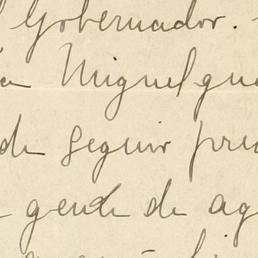 Gobernador.
Miguel que
de seguir pre
gende de ag